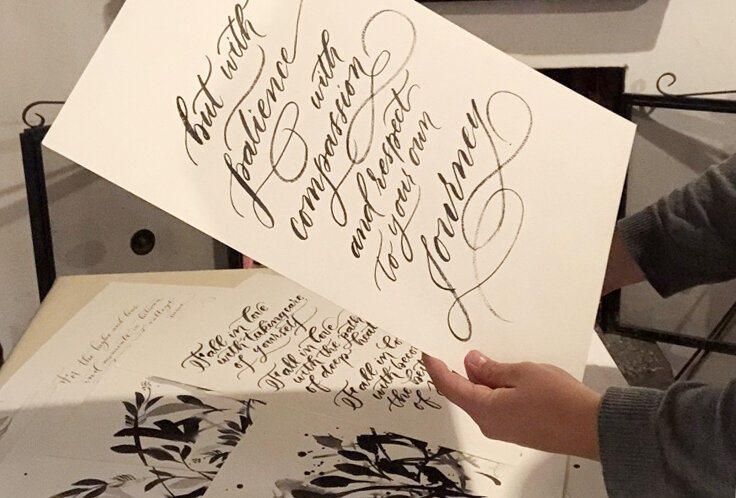 but with
patience
with
compassion
and respect
to your own
Journey
Fall in love
with taking care
of yourself
Fall in love
with the path
of deep heal
Fall in lo
with beco
the
of
For the highs and lows
and moments in between